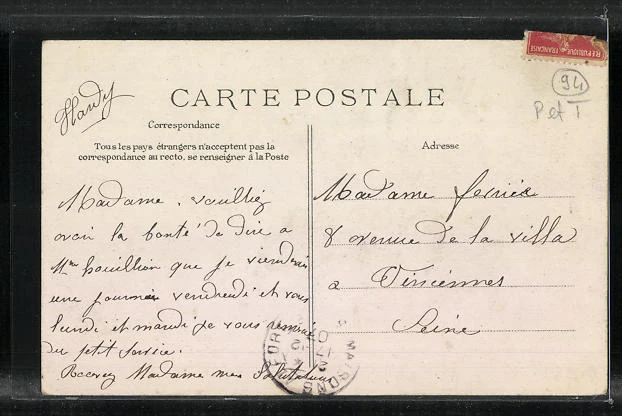 REPUBLIQUE FRANCAISE
94
P et T
Hardy
CARTE POSTALE
Correspondance
Tous les pays étrangers n'acceptent pas la
correspondance au recto, se renseigner à la Poste
Madame. veuilliez
avoir la bonté de dire a
Mme bouillion que je viendrais
une journee vendredi et vous
lundi et mardi je vous remerci
du petit service.
Recevez Madame mes Salutations
Adresse
Madame
8 avenue de la villa
a Vincennes
Seine